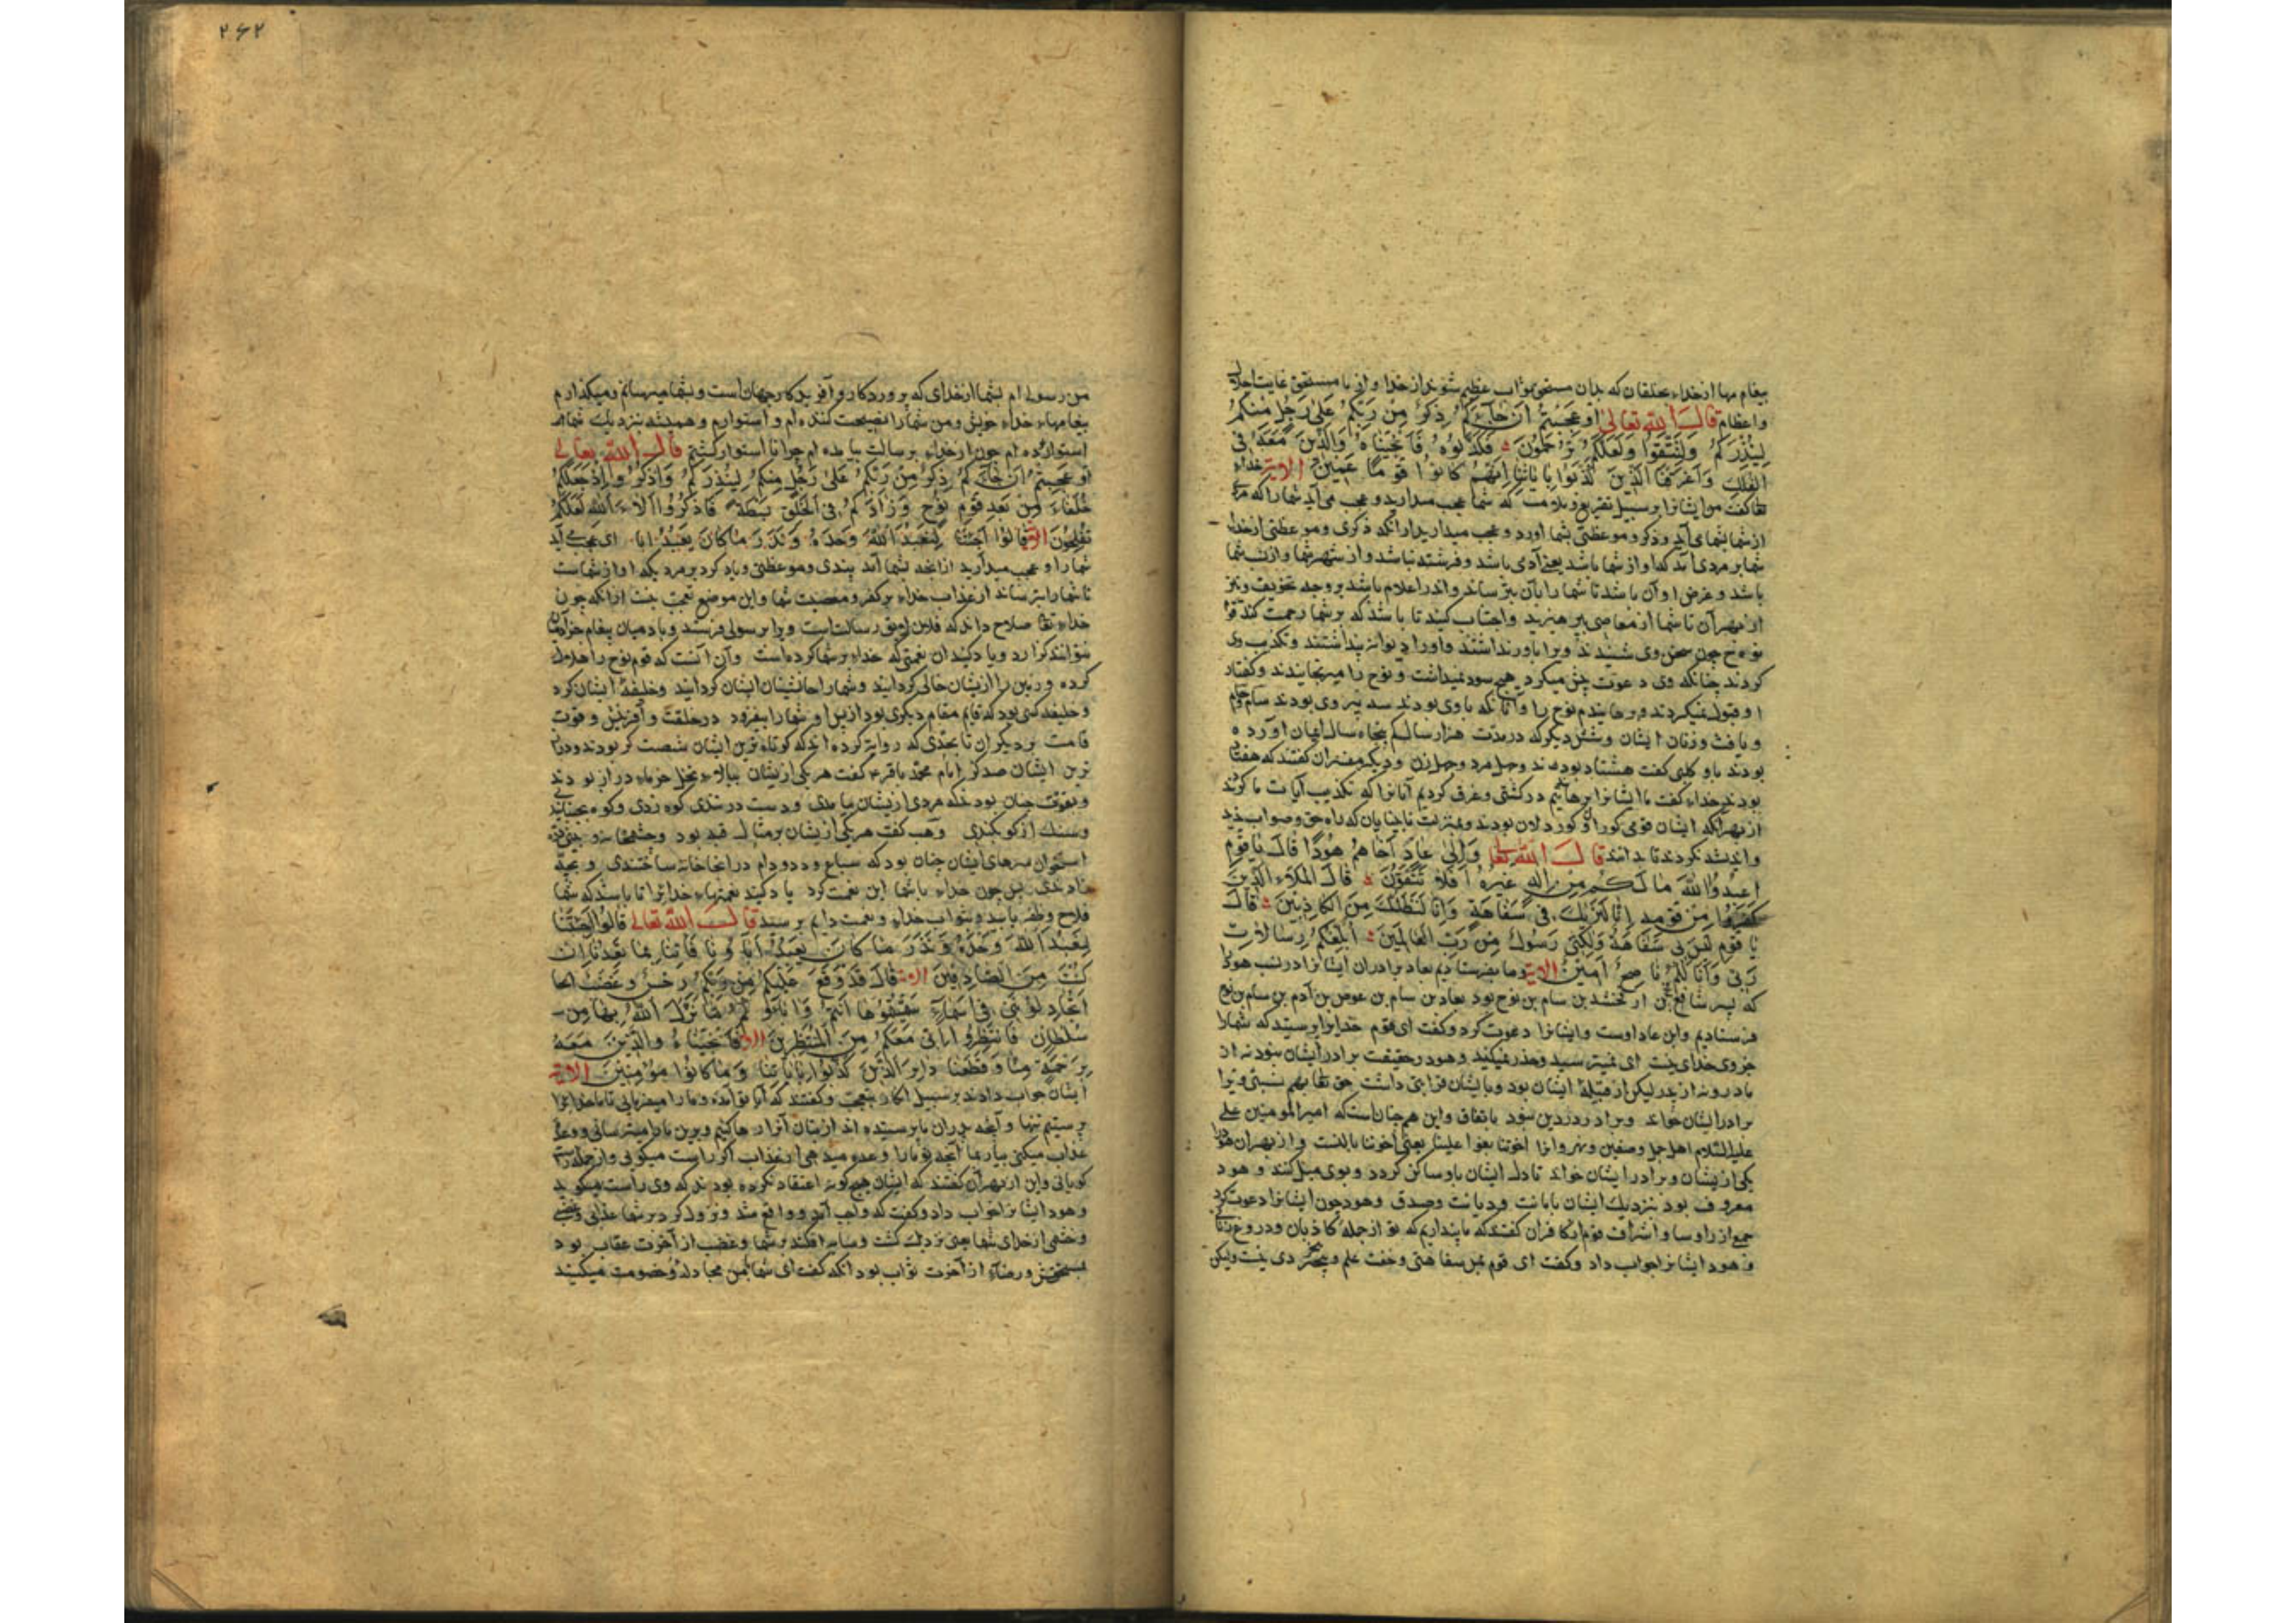 پیغام مها از خداء بخلقان که بدان مستحق ثواب عظیم شوند از خدا و از با مستحق غایت اجلال
واعظام قال الله تعالی اَوَعَجِبْتُمْ اَنْ جَاءَكُمْ ذِكْرٌ مِنْ رَبِّكُمْ عَلَى رَجُلٍ مِنْكُمْ
لِيُنْذِرَكُمْ وَلِتَتَّقُوا وَلَعَلَّكُمْ تُرْحَمُونَ فَكَذَّبُوهُ فَاَنْجَيْنَاهُ وَالَّذِينَ مَعَهُ فِی
الْفُلْكِ وَاَغْرَقْنَا الَّذِينَ كَذَّبُوا بِاٰيَاتِنَا اِنَّهُمْ كَانُوا قَوْمًا عَمِينَ الایة خداء
تعا گفت مر ایشانرا بر سبیل تقریع و ملامت که شما عجب میدارید و عجب می آید شما را که مردی
از شما بشما می آید و ذکر و موعظتی بشما آورد و عجب میدارید از آنکه ذکری و موعظتی از خدا
شما بر مردی آید که او از شما باشد یعنی آدمی باشد و فرشته نباشد و از شهر شما و از نسب شما
باشد و غرض او آن باشد تا شما را بآن بترساند و اندر اعلام باشد بر وجه تخویف و نیز
از بهر آن تا شما از معاصی بپرهیزید و اجتناب کنید تا باشد که بر شما رحمت کند قوم
نوح چون سخن وی شنیدند ویرا باور نداشتند و او را دیوانه پنداشتند و تکذیب وی
کردند چنانکه وی دعوت بیش میکرد هیچ سود نمیداشت و نوح را میرنجانیدند و گفتار
او قبول نمیکردند و برهانیدم نوح را و آنانکه با وی بودند سه پسر وی بودند سام حام
و یافث و زنان ایشان و شش دیگر که در مدت هزار سال کم پنجاه سال ایمان آورده
بودند باو کلبی گفت هشتاد بودند و چهل مرد و چهل زن و دیگر مفسران گفتند که هفتاد
بودند خداء گفت ما ایشانرا برهانیدیم در کشتی و غرق کردیم آنانرا که تکذیب آیات ما کردند
از بهر آنکه ایشان قومی کور و کوردلان بودند و بمنزلت نابینایان که راه حق و صواب ندید
و اندیشه نکردند تا بدانند قال الله تعا وَاِلٰى عَادٍ اَخَاهُمْ هُودًا قَالَ يَا قَوْمِ
اعْبُدُوا اللّٰهَ مَا لَكُمْ مِنْ اِلٰهٍ غَيْرُهُ اَفَلَا تَتَّقُونَ قَالَ الْمَلَاُ الَّذِينَ
كَفَرُوا مِنْ قَوْمِهِ اِنَّا لَنَرٰيكَ فِی سَفَاهَةٍ وَاِنَّا لَنَظُنُّكَ مِنَ الْكَاذِبِينَ قَالَ
يَا قَوْمِ لَيْسَ بِی سَفَاهَةٌ وَلٰكِنِّی رَسُولٌ مِنْ رَبِّ الْعَالَمِينَ اُبَلِّغُكُمْ رِسَالَاتِ
رَبِّی وَاَنَا لَكُمْ نَاصِحٌ اَمِينٌ الایة و ما بفرستادیم بعاد برادران ایشانرا در نسب هود
که پسر شالخ بن ارفخشد بن سام بن نوح بود بعاد بن سام بن عوص بن آدم بن سام بن نوح
فرستادیم و این عاد اوست و ایشانرا دعوت کرد و گفت ای قوم خدایرا پرستید که شما را
جز وی خدای نیست ای نمیترسید و حذر نمیکنید و هود در حقیقت برادر ایشان نبود نه از
مادر و نه از پدر لیکن از قبیله ایشان بود و با ایشان قرابتی داشت حق تعا بهم نسبتی ویرا
برادر ایشان خواند و برادر در دین نبود باتفاق و این همچنان است که امیر المومنین علی
علیه السلام اهل جمل و صفین و نهروانرا اخوتنا بغوا علینا یعنی اخوتنا بالنسب و از بهر آن هود را
یکی از ایشان و برادر ایشان خواند تا دل ایشان باو ساکن گردد و بوی میل کنند و هود
معروف بود بنزدیک ایشان بامانت و دیانت و صدق و هود چون ایشانرا دعوت کرد
جمع از راوسا و اشراف قوم از کافران گفتند که ما پنداریم که تو از جمله کاذبان و دروغ زنانی
و هود ایشانرا جواب داد و گفت ای قوم بمن سفاهتی و خفت علم و بیخردی نیست ولیکن
۲۶۲
من رسول ام بشما از خدای که پروردگار و آفریدگار جهان است و بشما میرسانم و میگذارم
پیغامهاء خداء خویش و من شما را نصیحت کننده ام و استوارم و همیشه بنزدیک شما
استوار بوده ام چون از خداء برسالت بیامده ام چرا نا استوار گشتم قال الله تعالی
اَوَعَجِبْتُمْ اَنْ جَاءَكُمْ ذِكْرٌ مِنْ رَبِّكُمْ عَلَى رَجُلٍ مِنْكُمْ لِيُنْذِرَكُمْ وَاذْكُرُوا اِذْ جَعَلَكُمْ
خُلَفَاءَ مِنْ بَعْدِ قَوْمِ نُوحٍ وَزَادَكُمْ فِی الْخَلْقِ بَسْطَةً فَاذْكُرُوا اٰلَاءَ اللّٰهِ لَعَلَّكُمْ
تُفْلِحُونَ الایة قَالُوا اَجِئْتَنَا لِنَعْبُدَ اللّٰهَ وَحْدَهُ وَنَذَرَ مَا كَانَ يَعْبُدُ ابا ای عجب آید
شما را و عجب میدارید از آنچه بشما آمد پندی و موعظتی و یاد کرد بر مردیکه او از شماست
تا شما را بترساند از عذاب خداء بر کفر و معصیت شما و این موضع تعجب نیست از آنکه چون
خداء تعا صلاح داند که فلان لایق رسالت است ویرا برسولی فرستد و بآدمیان پیغام خدا
بتواند گزارد و یاد کنید آن نعمتی که خداء بر شما کرده است وآن آنست که قوم نوح را هلاک
کرده و زمین را از ایشان خالی گردانید و شما را جانشینان ایشان گردانید و خلیفه ایشان کرد
و خلیفه کسی بود که قایم مقام دیگری بود از پس او و شما را بیفزود در خلقت و آفرینش و قوت
قامت بر دیگران تا بحدی که روایت کرده اند که کوتاه ترین ایشان شصت گز بودند و دراز
ترین ایشان صد گز امام محمد باقر ع گفت هر یکی از ایشان ببالاء نخل خرماء دراز بودند
و بقوت چنان بودند که مردی از ایشان بیامدی و دست در شدی کوه زدی و کوه بجنبانیدی
و سنگ از کوه بکندی وهب گفت هر یکی از ایشان بر مثال قبه بود
استخوان سرهای ایشان چنان بود که سباع و دد و دام در آنجا خانه ساختندی و بچه
زادندی پس چون خداء با شما این نعمت کرد یاد کنید نعمتهاء خدایرا تا باشد که شما
فلاح و ظفر یابید و بثواب خداء و نعمت دایم برسید قال الله تعالی قَالُوا اَجِئْتَنَا
لِنَعْبُدَ اللّٰهَ وَحْدَهُ وَنَذَرَ مَا كَانَ يَعْبُدُ اٰبَاؤُنَا فَاْتِنَا بِمَا تَعِدُنَا اِنْ
كُنْتَ مِنَ الصَّادِقِينَ الایة قَالَ قَدْ وَقَعَ عَلَيْكُمْ مِنْ رَبِّكُمْ رِجْسٌ وَغَضَبٌ
اَتُجَادِلُونَنِی فِی اَسْمَاءٍ سَمَّيْتُمُوهَا اَنْتُمْ وَاٰبَاؤُكُمْ مَا نَزَّلَ اللّٰهُ بِهَا مِنْ
سُلْطَانٍ فَانْتَظِرُوا اِنِّی مَعَكُمْ مِنَ الْمُنْتَظِرِينَ الایة فَاَنْجَيْنَاهُ وَالَّذِينَ مَعَهُ
بِرَحْمَةٍ مِنَّا وَقَطَعْنَا دَابِرَ الَّذِينَ كَذَّبُوا بِاٰيَاتِنَا وَمَا كَانُوا مُؤْمِنِينَ الایة
ایشان جواب دادند بر سبیل انکار و تعجب و گفتند که آیا تو آمده و ما را میفرمایی تا ما خدایرا
پرستیم تنها و آنچه پدران ما پرستیده اند از بتان آنرا رها کنیم و برین ما را میترسانی و وعد
عذاب میکنی بیار بما آنچه تو ما را وعده میدهی از عذاب اگر راست میگویی و از جمله راست
گویانی و این از بهر آن گفتند که ایشان هیچ گونه اعتقاد نکرده بودند که وی راست میگوید
و هود ایشانرا جواب داد و گفت که واجب آمد و واقع شد و نزول کرد بر شما عذابی و غضبی
و خشمی از خدای شما یعنی نزدیک گشت و سایه افکند بر شما و غضب از آخرت عقاب بود
ورضاء از آخرت ثواب بود آنگه گفت ای شما بمن مجادله و خصومت میکنید